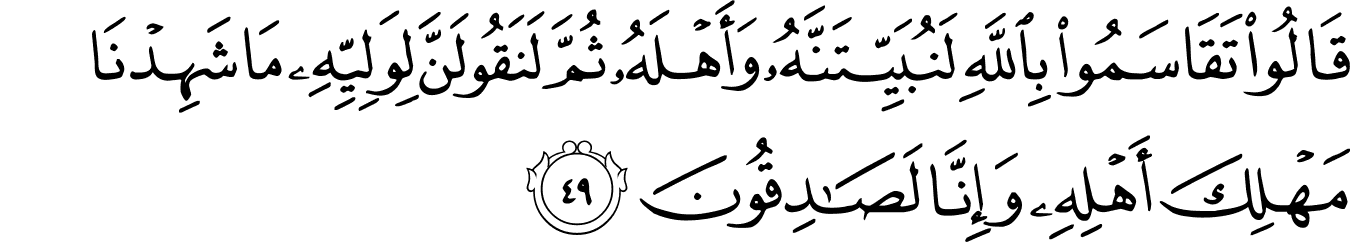 قَالُوا۟ تَقَاسَمُوا۟ بِٱللَّهِ لَنُبَيِّتَنَّهُۥ وَأَهْلَهُۥ ثُمَّ لَنَقُولَنَّ لِوَلِيِّهِۦ مَا شَهِدْنَا
مَهْلِكَ أَهْلِهِۦ وَإِنَّا لَصَـٰدِقُونَ ٤٩